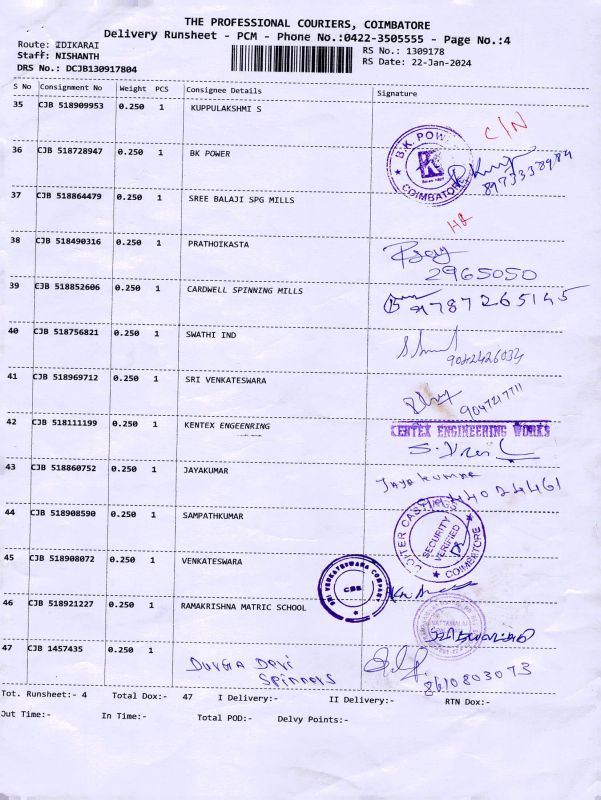 THE PROFESSIONAL COURIERS, COIMBATORE
Delivery Runsheet - PCM - Phone No.:0422-3505555 - Page No.:4
Route: IDIKARAI
Staff: NISHANTH
RS No.: 1309178
DRS No.: DCJB130917804
RS Date: 22-Jan-2024
S No Consignment No Weight PCS Consignee Details Signature
35 CJB 518909953 0.250 1 KUPPULAKSHMI S
C/N
36 CJB 518728947 0.250 1 BK POWER
B.K. POWER
K
COIMBATORE
8973338984
37 CJB 518864479 0.250 1 SREE BALAJI SPG MILLS
38 CJB 518490316 0.250 1 PRATHOIKASTA
2965050
39 CJB 518852606 0.250 1 CARDWELL SPINNING MILLS
9787265145
40 CJB 518756821 0.250 1 SWATHI IND
9042426034
41 CJB 518969712 0.250 1 SRI VENKATESWARA
9047217711
42 CJB 518111199 0.250 1 KENTEX ENGEENRING
KENTEX ENGINEERING WORKS
43 CJB 518860752 0.250 1 JAYAKUMAR
Jayakumar
44 CJB 518908590 0.250 1 SAMPATHKUMAR
SECURITY
VERIFIED
COIMBATORE
45 CJB 518908072 0.250 1 VENKATESWARA
SRI VENKATESWARA COMPANY
CBE
46 CJB 518921227 0.250 1 RAMAKRISHNA MATRIC SCHOOL
47 CJB 1457435 0.250 1 Durga Devi
Spinners
8610803073
Tot. Runsheet:- 4 Total Dox:- 47 I Delivery:- II Delivery:- RTN Dox:-
Out Time:- In Time:- Total POD:- Delvy Points:-